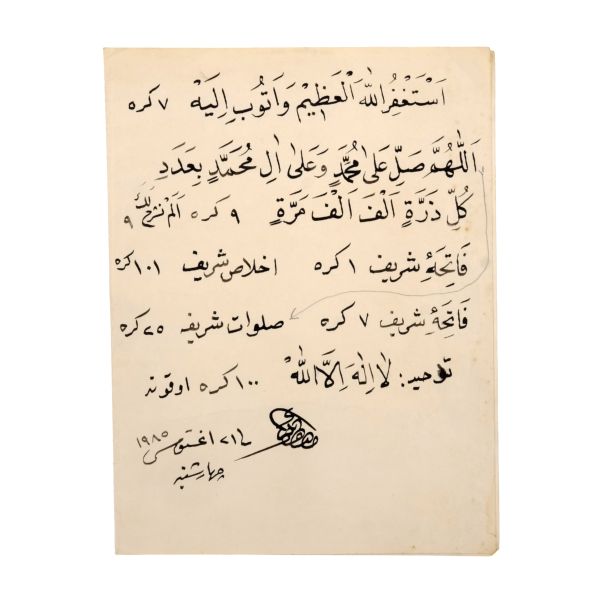 اَسْتَغْفِرُ اللّٰهَ الْعَظِيْمْ وَاَتُوبُ اِلَيْهْ ٧ كره
اَللّٰهُمَّ صَلِّ عَلىٰ مُحَمَّدٍ وَعَلىٰ اٰلِ مُحَمَّدٍ بِعَدَدِ
كُلِّ ذَرَّةٍ اَلْفَ اَلْفَ مَرَّةٍ ٩ كره اَلَمْ نَشْرَحْ لَكَ ٩
فَاتِحَهٔ شريف ١ كره اخلاص شريف ١٠١ كره
فَاتِحَهٔ شريف ٧ كره صلوات شريفه ٢٥ كره
توحيد: لَا اِلٰهَ اِلَّا اللّٰهْ ١٠٠ كره اوقونه
٢١ اغستوس ١٩٨٥
چهارشنبه